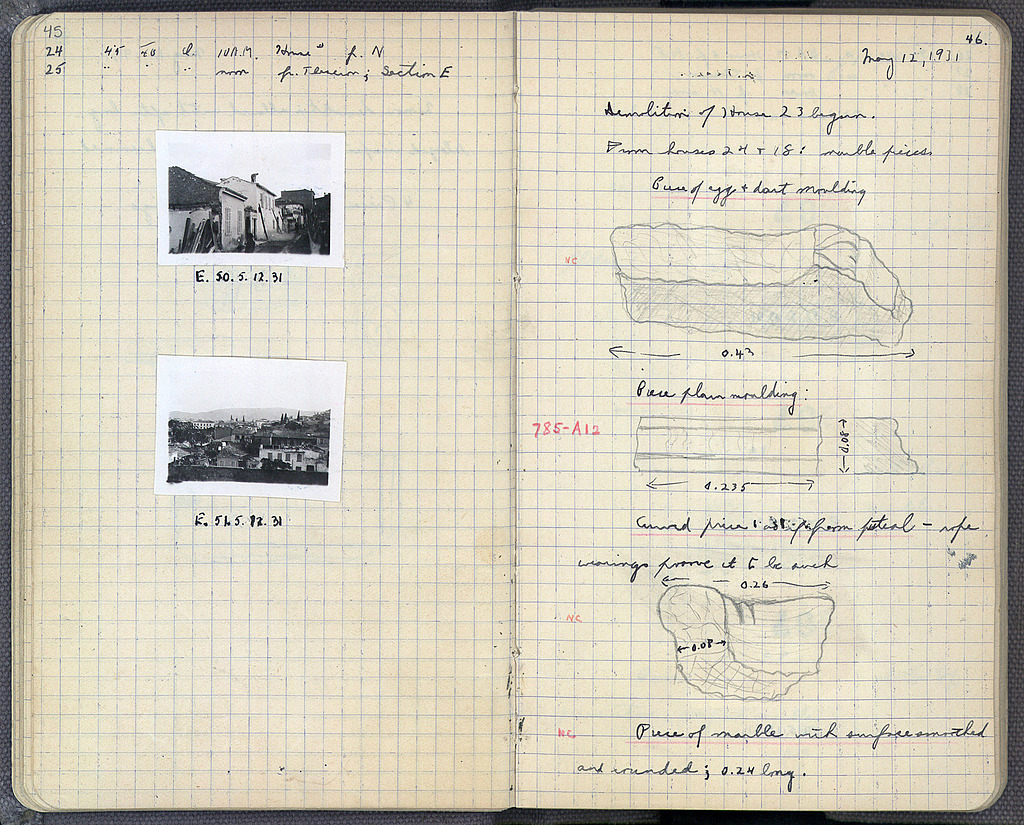 45
24 45 20 d. 10 A.M. "House" fr. N
25 " " " noon fr. Theseion; Section E
E. 50. 5. 12. 31
E. 51. 5. 12. 31
46.
May 12, 1931
Demolition of House 23 begun.
From houses 24 + 18: marble pieces
Piece of egg + dart moulding
NC
0.43
Piece plain moulding:
785-A12
0.08
0.235
Curved piece from puteal - rope
wearings prove it to be such
0.26
NC
0.08
NC Piece of marble with surface smoothed
and rounded; 0.24 long.